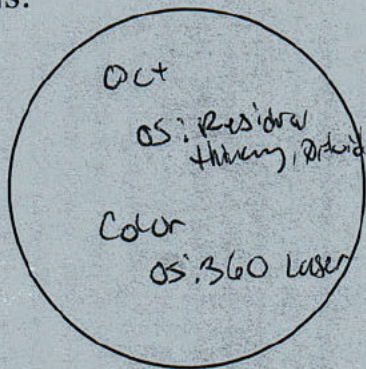 OCT
OS: Residual
thinning,
Color
OS: 360 Laser